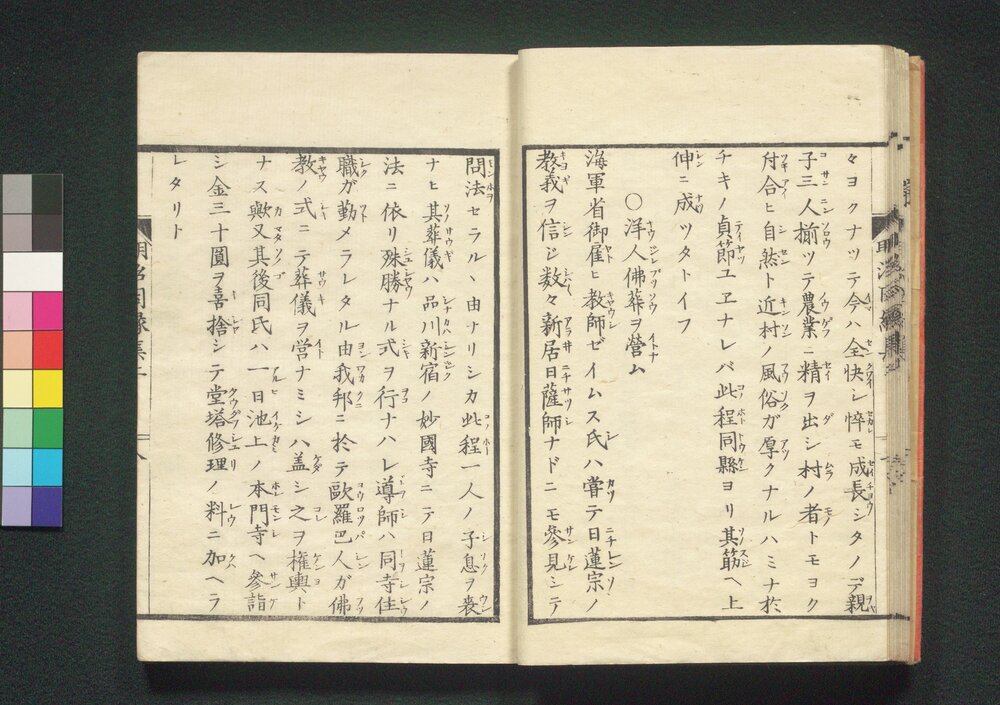 々ヨクナツテ今ハ全快シ悴モ成長シタノデ親
子三人揃ツテ農業ニ精ヲ出シ村ノ者トモヨク
付合ヒ自然ト近村ノ風俗ガ厚クナルハミナ於
チキノ貞節ユヱナレバ此程同縣ヨリ其筋ヘ上
伸ニ成ツタトイフ
○洋人佛葬ヲ營ム
海軍省御雇ヒ教師ゼイムス氏ハ嘗テ日蓮宗ノ
教義ヲ信ジ数々新居日薩師ナドニモ參見シテ
問法セラルヽ由ナリシカ此程一人ノ子息ヲ喪
ナヒ其葬儀ハ品川新宿ノ妙國寺ニテ日蓮宗ノ
法ニ依リ殊勝ナル式ヲ行ナハレ導師ハ同寺住
職ガ勤メラレタル由我邦ニ於テ歐羅巴人ガ佛
教ノ式ニテ葬儀ヲ営ナミシハ盖シ之ヲ権輿ト
ナス歟又其後同氏ハ一日池上ノ本門寺ヘ參詣
シ金三十圓ヲ喜捨シテ堂塔修理ノ料ニ加ヘラ
レタリト